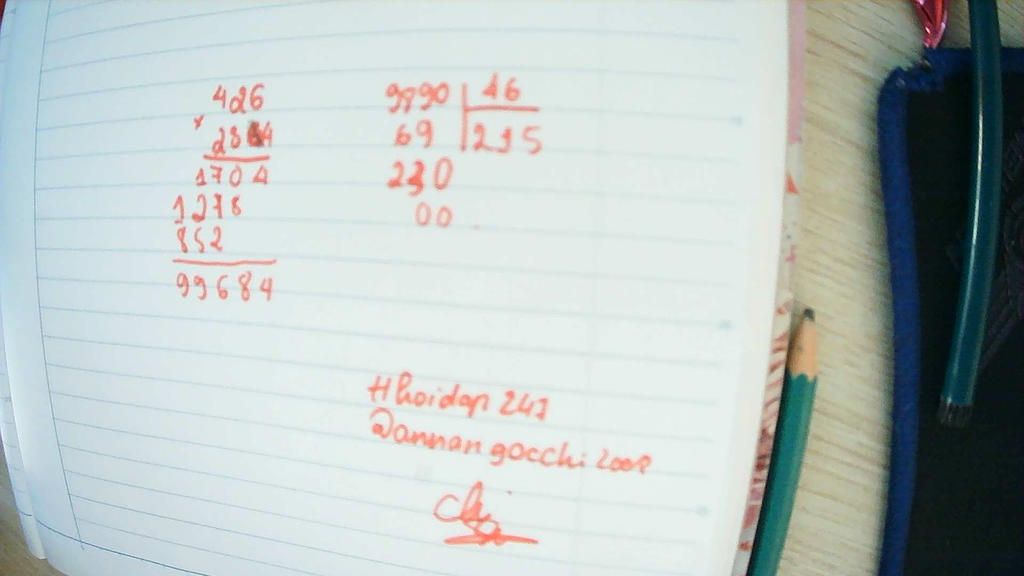 426
×
234
1704
1278
852
99684
9890 46
69 215
230
00
#hoidap 247
@annangocchi2008
Chi